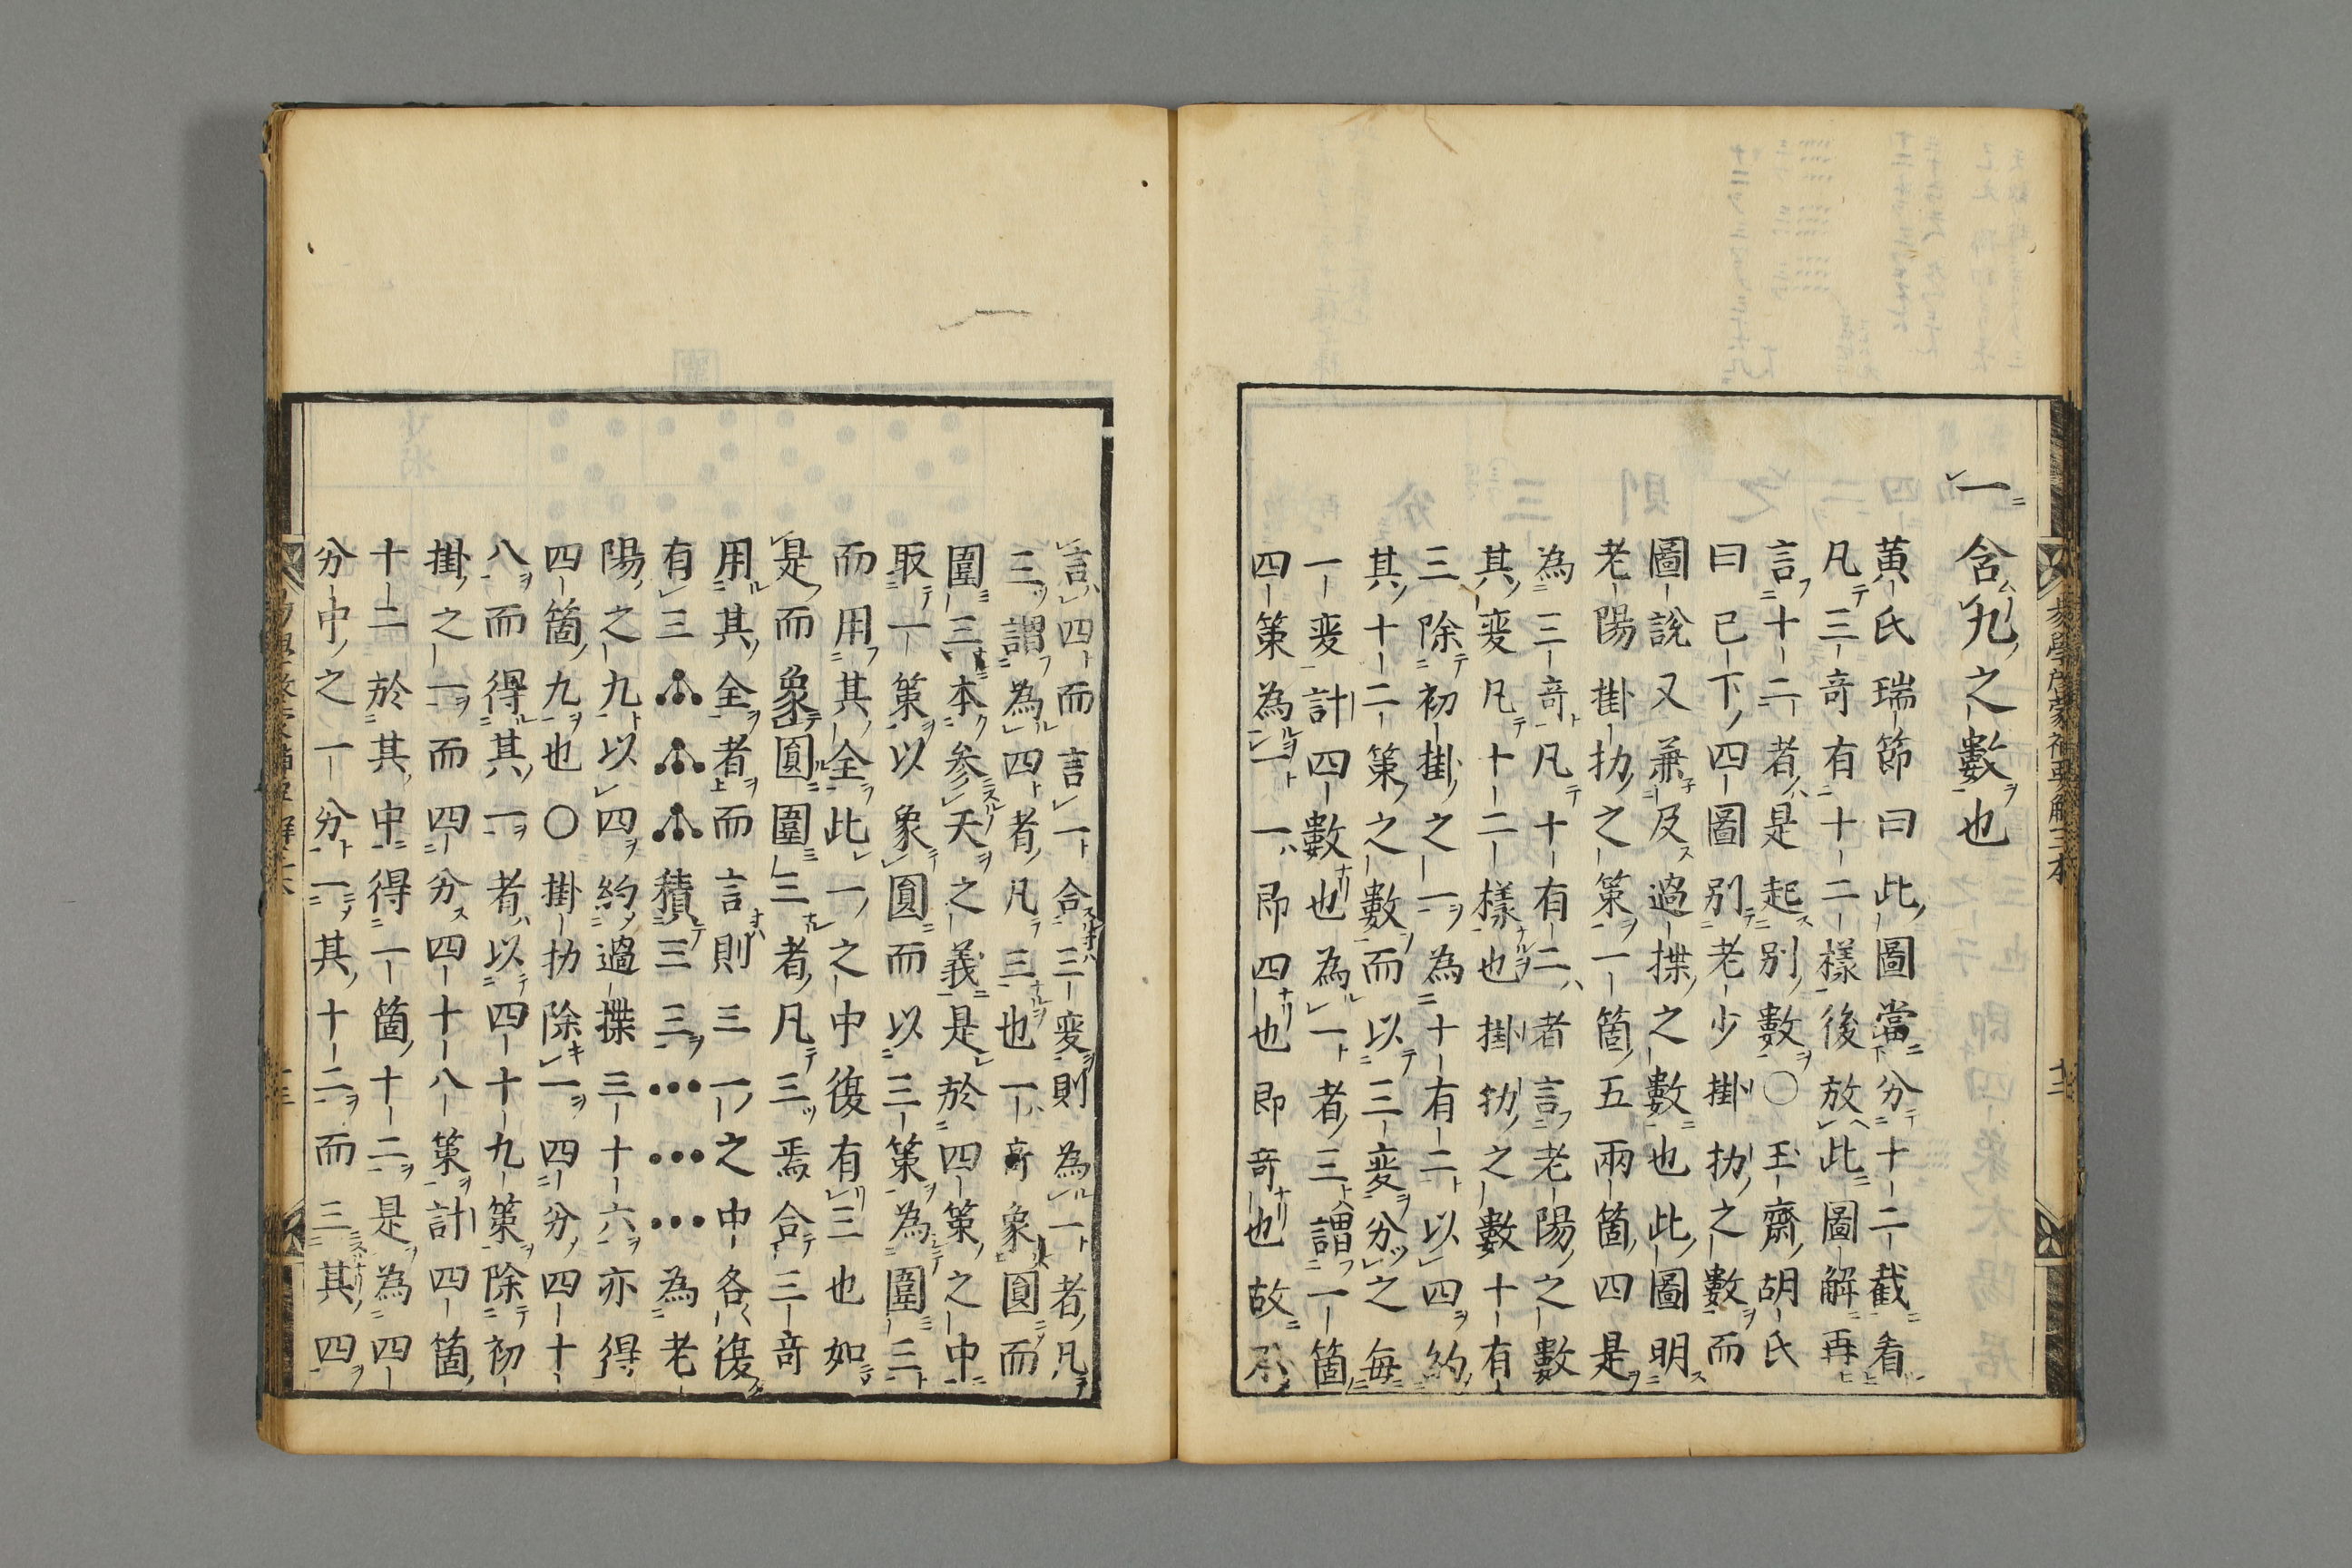 一含九之數也
黄氏瑞節曰此圖當分十二截看
凡三竒有十二樣後放此圖解再
言十二者是起別數〇玉齋胡氏
曰已下四圖別老少掛扐之數而
圖說又兼及過揲之數也此圖明
老陽掛扐之策一箇五兩箇四是
為三竒凡十有二者言老陽之數
其変凡十二樣也掛扐之數十有
三除初掛之一為十有二以四約
其十二策之數而以三変分之毎
一変計四數也為一者三謂一箇
四策為一一即四也即竒也故
言四而言一合三変則為一者凡
三謂為四者凡三也一竒象圓而
圍三本参天之義是於四策之中
取一策以象圓而以三策為圍三
而用其全此一之中復有三也如
是而象圓圍三者凡三焉合三竒
用其全者而言則三一之中各復
有三積三三為老
陽之九以四約過揲三十六亦得
四箇九也〇掛扐除一四分四十
八而得其一者以四十九策除初
掛之一而四分四十八策計四箇
十二於其中得一箇十二是為四
分中之一分一其十二而三其四
易學啓蒙補要解三本
十二